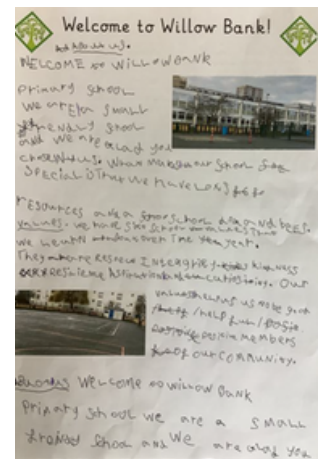 Welcome to Willow Bank!
WELCOME to WiLLOW BANK
primary school
we are a small
friendly school
and we are glad you
chose us. What makes our school
special is that we have lots
resources and a school and bees.
values. we have six school values that
we learn over the year.
They are respect Integrity kindness
resilience Aspiration and curiosity. Our
values help us to be good
helpful
positive members
of our COMMUNITY.
WELCOME to WiLLOW Bank
primary school we are a SMALL
school and We are glad you